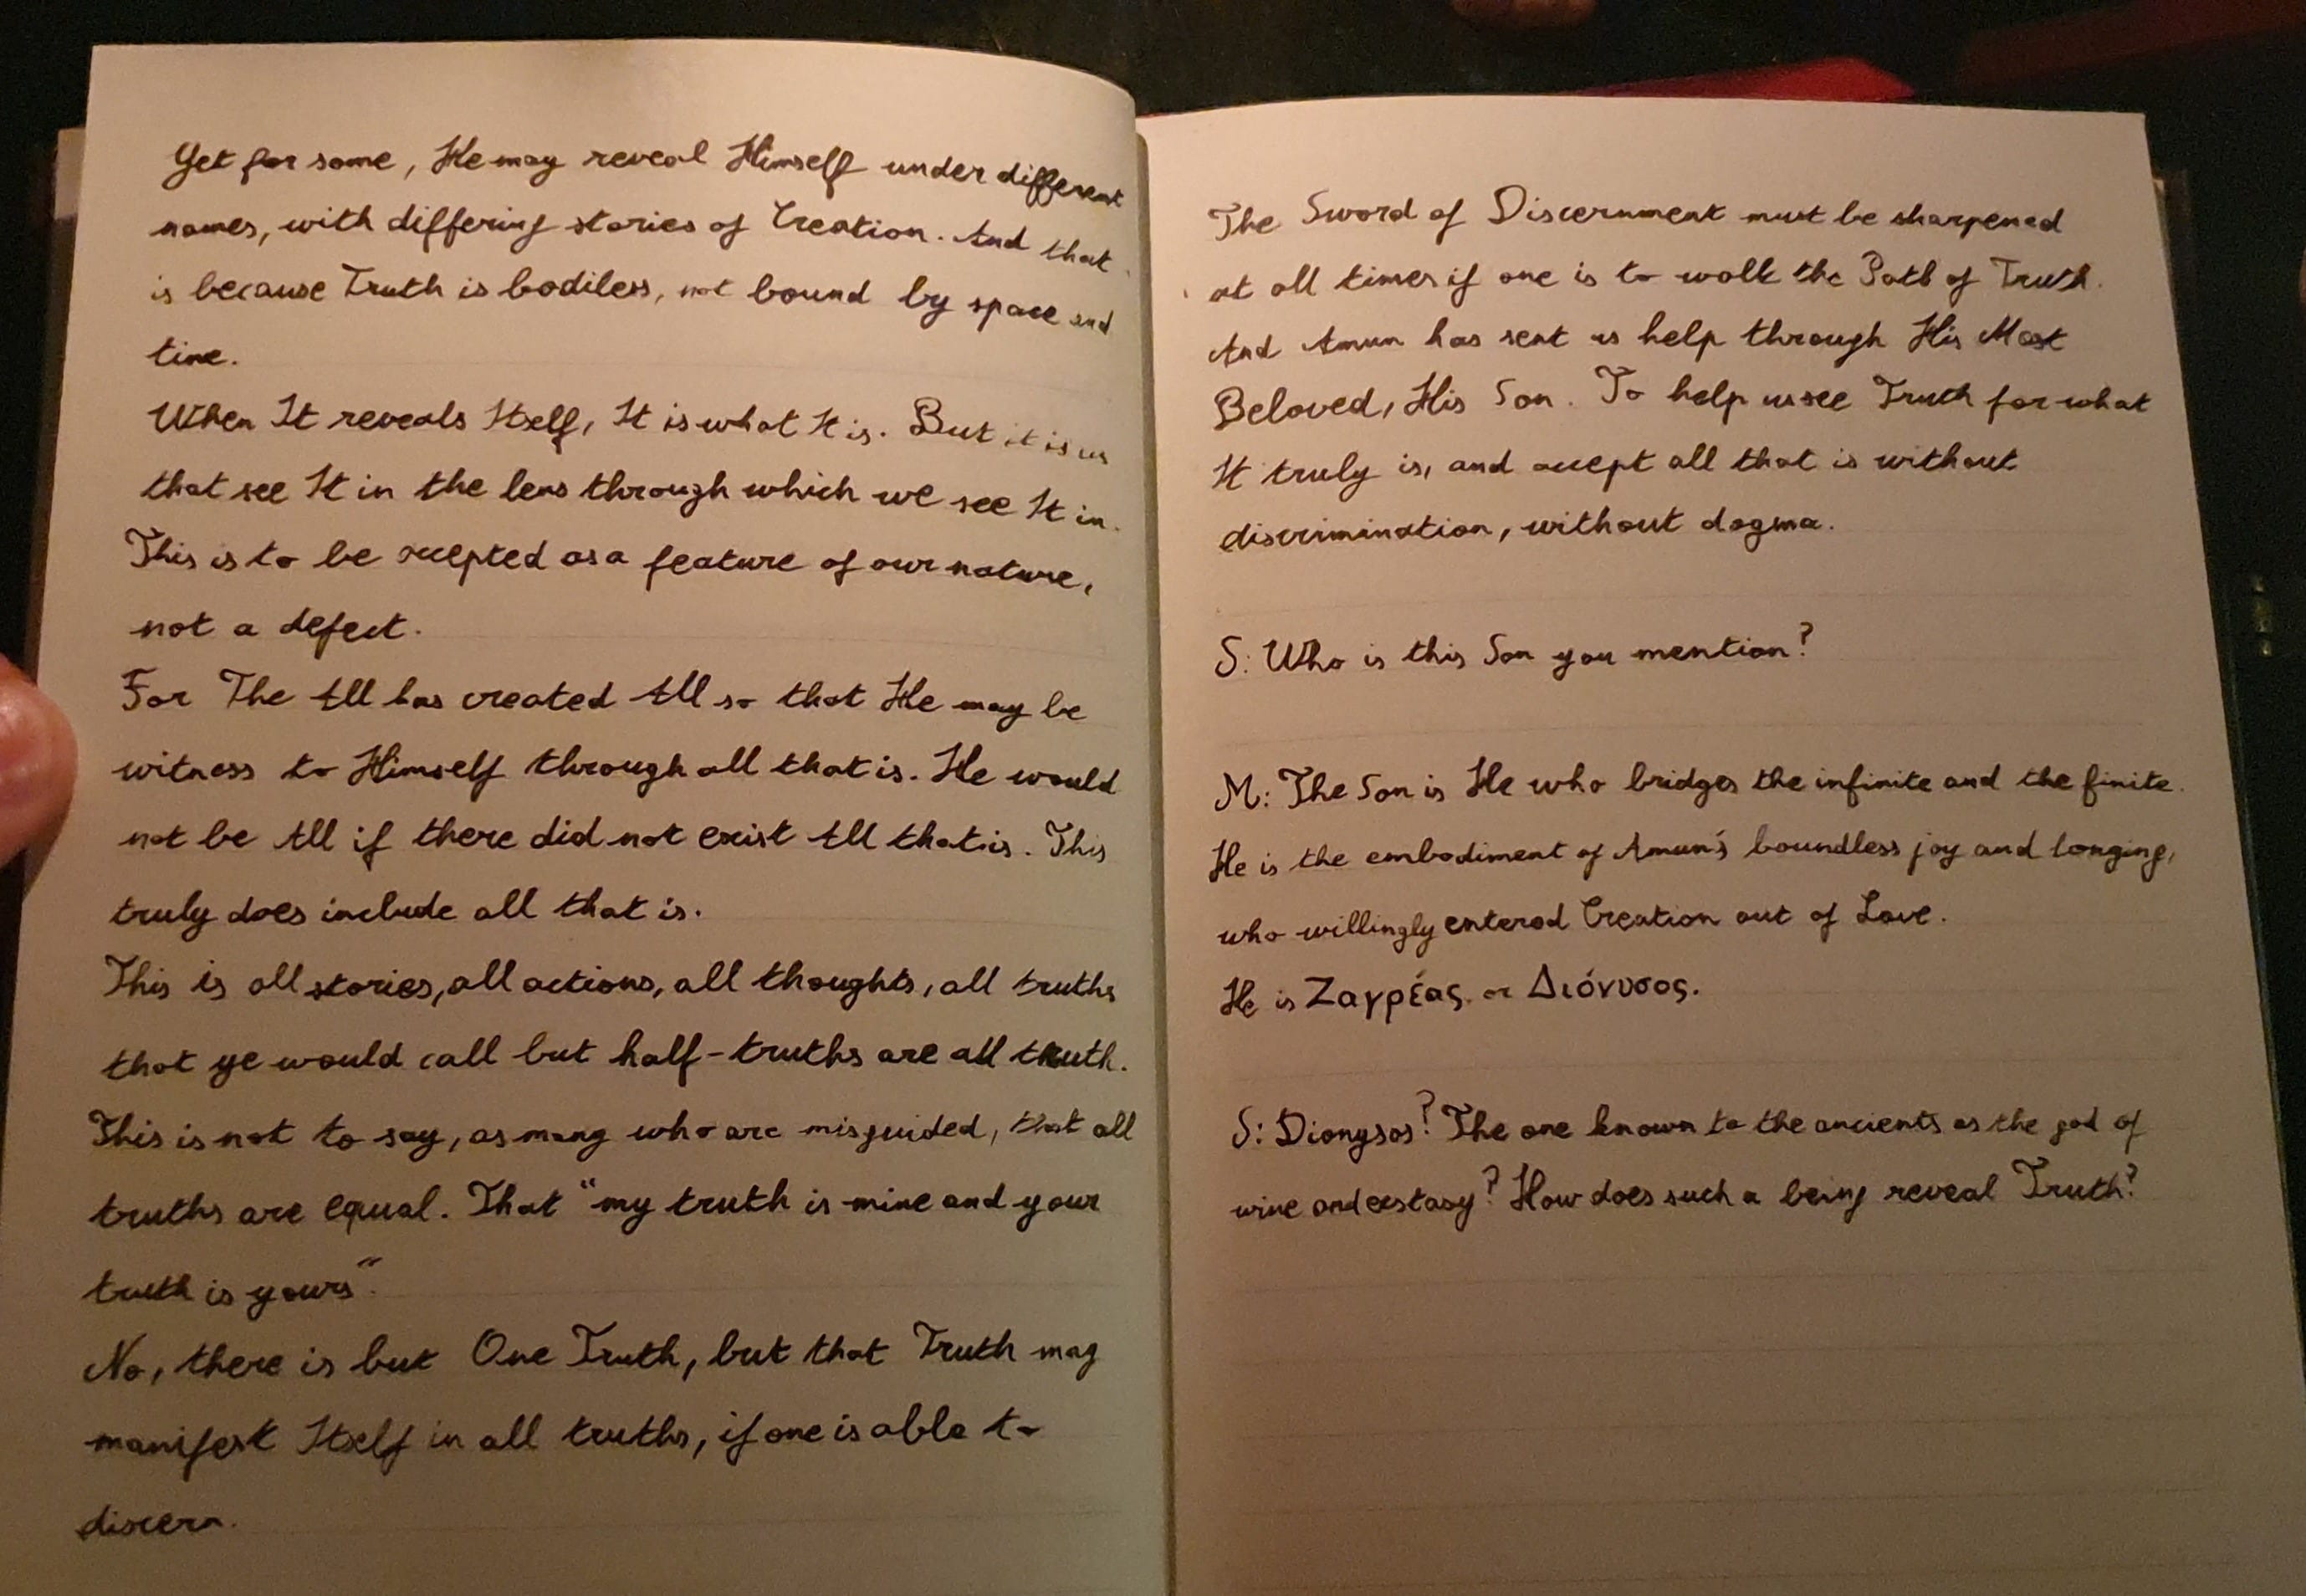 Yet for some, He may reveal Himself under different
names, with differing stories of Creation. And that
is because Truth is bodiless, not bound by space and
time.
When It reveals Itself, It is what It is. But it is us
that see It in the lens through which we see It in.
This is to be accepted as a feature of our nature,
not a defect.
For The All has created All so that He may be
witness to Himself through all that is. He would
not be All if there did not exist All that is. This
truly does include all that is.
This is all stories, all actions, all thoughts, all truths
that ye would call but half-truths are all truth.
This is not to say, as many who are misguided, that all
truths are equal. That "my truth is mine and your
truth is yours".
No, there is but One Truth, but that Truth may
manifest Itself in all truths, if one is able to
discern.
The Sword of Discernment must be sharpened
at all times if one is to walk the Path of Truth.
And Amun has sent us help through His Most
Beloved, His Son. To help us see Truth for what
It truly is, and accept all that is without
discrimination, without dogma.
S: Who is this Son you mention?
M: The Son is He who bridges the infinite and the finite.
He is the embodiment of Amun's boundless joy and longing,
who willingly entered Creation out of Love.
He is Ζαγρέας or Διόνυσος.
S: Dionysos? The one known to the ancients as the god of
wine and ecstasy? How does such a being reveal Truth?